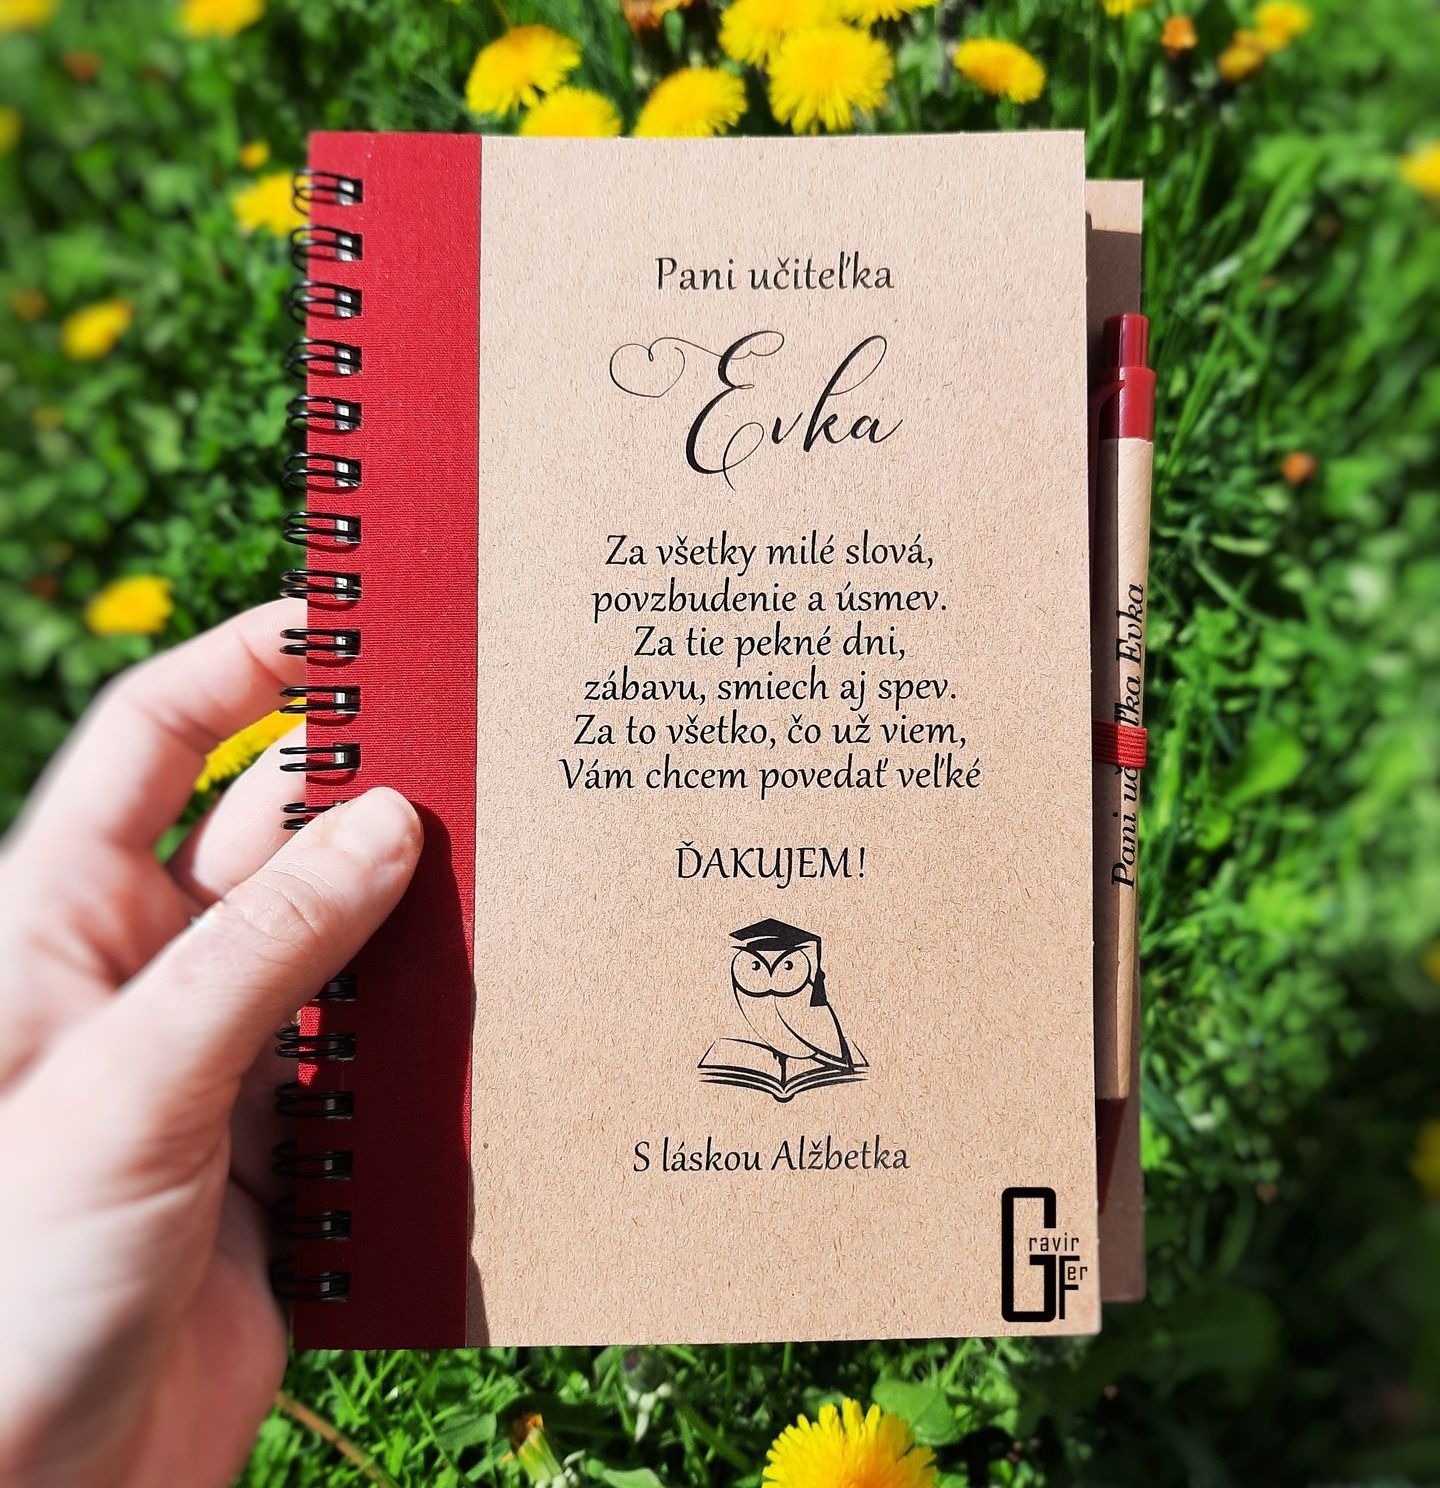 Pani učiteľka
Evka
Za všetky milé slová,
povzbudenie a úsmev.
Za tie pekné dni,
zábavu, smiech aj spev.
Za to všetko, čo už viem,
Vám chcem povedať veľké
ĎAKUJEM!
S láskou Alžbetka
Gravir
Fer
Pani uč ľka Evka